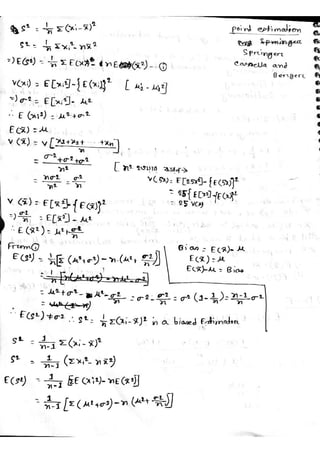 S² = 1/n Σ(xi-x̄)²
point estimation
S² = 1/n Σxi² - nx̄²
Springer
Springer
=) E(S²) = 1/n Σ E(xi²) - nE(x̄²) -①
Casella and
Bergers
V(xi) = E[xi²] - {E(xi)}² [μ₂'-μ₁'²]
=) σ² = E[xi²] - μ²
∴ E(xi²) = μ²+σ²
E(x̄) = μ
V(x̄) = V[(x1+x2+ +xn)/n]
= (σ²+σ²+ +σ²)/n²
= nσ²/n² = σ²/n
V(5X) = E[25X²]-{E(5X)}²
= 25{E[X²]-{E(X)}²
= 25 V(X)
V(x̄) = E[x̄²]-{E(x̄)}²
=) σ²/n = E[x̄²] - μ²
∴ E(x̄²) = μ²+σ²/n
From①
E(S²) = 1/n[Σ(μ²+σ²) - n.(μ²+σ²/n)]
Bias = E(x̄)-μ
E(x̄) = μ
E(x̄)-μ = Bias
= μ²+σ²-μ²-σ²/n = σ²-σ²/n = σ²(1-1/n) = (n-1)/n.σ²
∴ E(S²) ≠ σ² ∴ S² = 1/n Σ(xi-x̄)² is a biased Estimator
S² = 1/(n-1) Σ(xi-x̄)²
S² = 1/(n-1) (Σxi²-nx̄²)
E(S²) = 1/(n-1) [ΣE(xi²)-nE(x̄²)]
= 1/(n-1) [Σ(μ²+σ²)-n(μ²+σ²/n)]